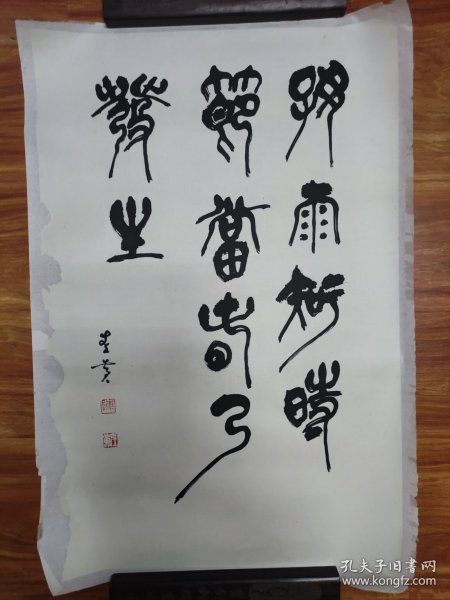 好雨知時
節當春乃
發生
孔夫子旧书网
www.kongfz.com